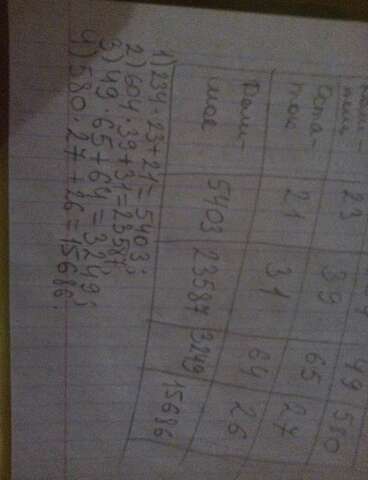 49 580
тель 23 39 65 27
Оста-
ток 21 31 64 26
Дели-
мое 5403 23587 3249 15686
1) 234·23+21=5403;
2) 604·39+31=23587;
3) 49·65+64=3249;
4) 580·27+26=15686.